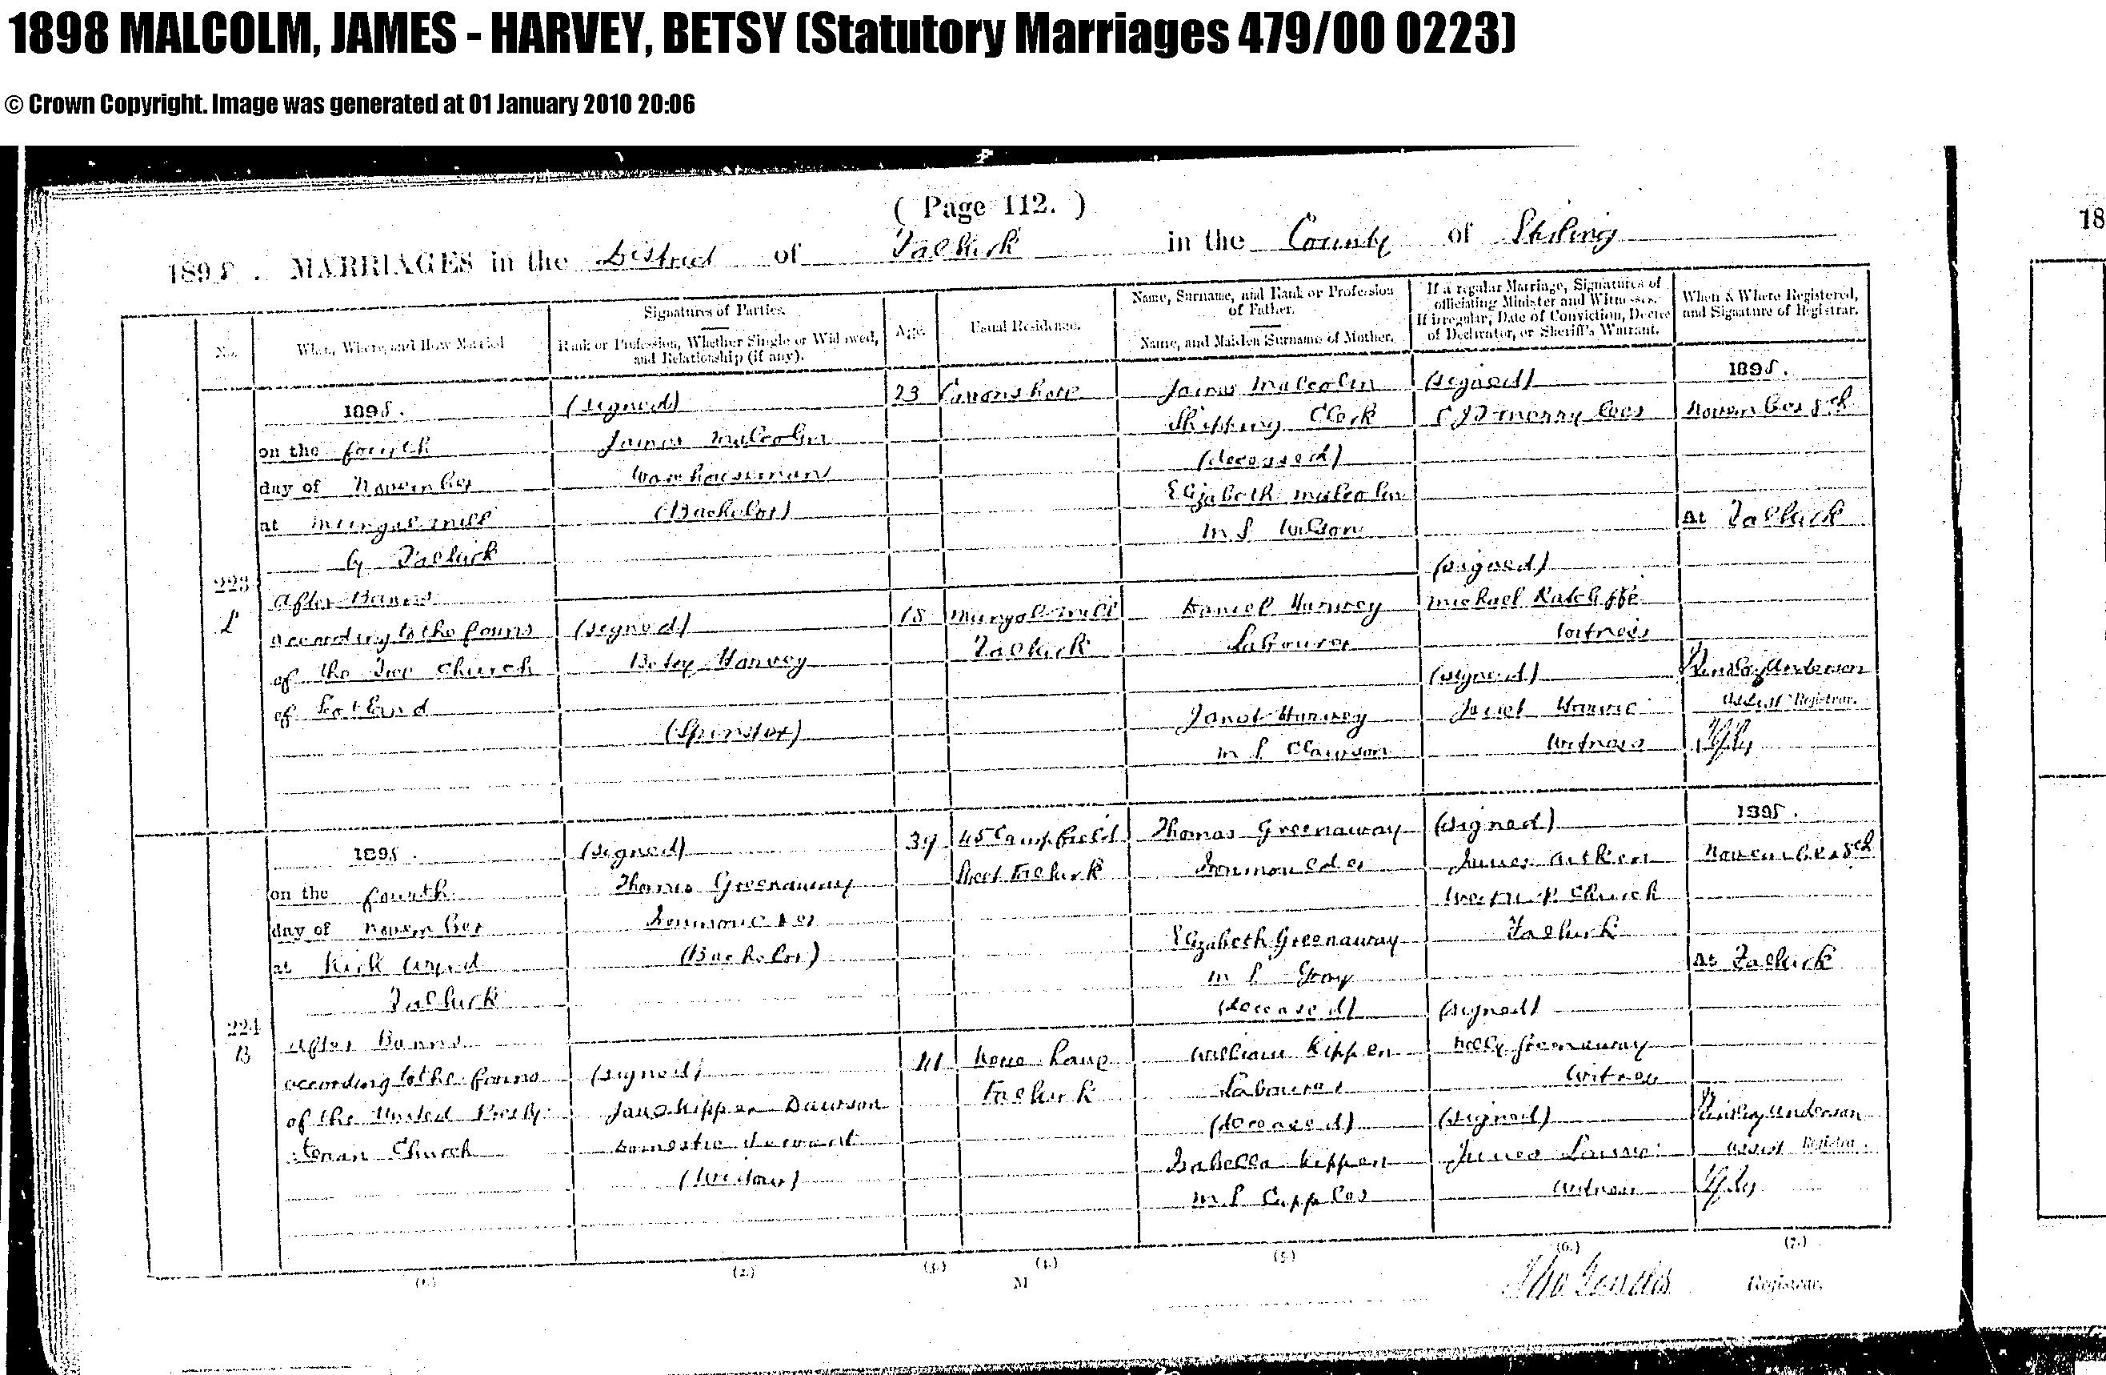 1898 MALCOLM, JAMES - HARVEY, BETSY (Statutory Marriages 479/00 0223)
© Crown Copyright. Image was generated at 01 January 2010 20:06
( Page 112. )
1898. MARRIAGES in the District of Falkirk in the County of Stirling
18
No.
When, Where, and How Married
Signatures of Parties.
Rank or Profession, Whether Single or Widowed,
and Relationship (if any).
Age.
Usual Residence.
Name, Surname, and Rank or Profession
of Father.
Name, and Maiden Surname of Mother.
If a regular Marriage, Signatures of
officiating Minister and Witnesses.
If irregular, Date of Conviction, Decree
of Declarator, or Sheriff's Warrant.
When & Where Registered,
and Signature of Registrar.
223
1898.
on the fourth
day of November
at Mungal Mill
by Falkirk
After Banns
according to the forms
of the Free Church
of Scotland
(signed)
James Malcolm
Warehouseman
(Bachelor)
(signed)
Betsy Harvey
(Spinster)
23
18
Carronshore
Mungal Mill
Falkirk
James Malcolm
Shipping Clerk
(deceased)
Elizabeth Malcolm
M S Wilson
Daniel Harvey
Labourer
Janet Harvey
M S Clawson
(signed)
Merrylees
(signed)
Michael Ratcliffe
Witness
(signed)
Janet
Witness
1898.
November 8th
At Falkirk
Anderson
Assist Registrar.
224
B
1898.
on the fourth
day of November
at Kirk Wynd
Falkirk
After Banns
according to the forms
of the United Presby-
terian Church
(signed)
Thomas Greenaway
Ironmoulder
(Bachelor)
(signed)
Jane Kippen Dawson
Domestic Servant
(Widow)
39
41
45 Campfield
Street Falkirk
Howe Lane
Falkirk
Thomas Greenaway
Ironmoulder
Elizabeth Greenaway
M S Gray
(deceased)
William Kippen
Labourer
(deceased)
Isabella Kippen
M S Cupples
(signed)
James Aitken
West U. P. Church
Falkirk
(signed)
Greenaway
Witness
(signed)
James
Witness
1898.
November 8th
At Falkirk
Anderson
Assist Registrar.
(1.)
(2.)
(3.)
(4.)
(5.)
(6.)
(7.)
M
Registrar.